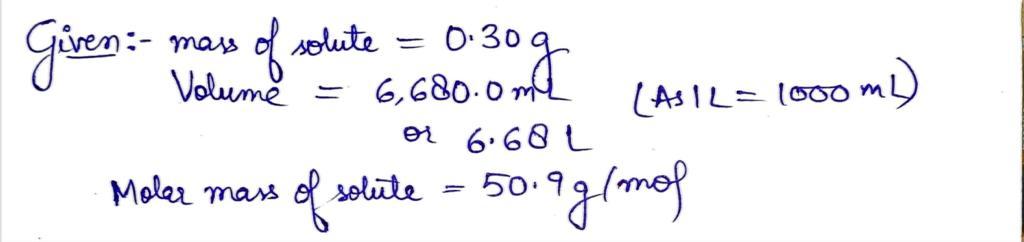 Given:- mass of solute = 0.30 g
Volume = 6,680.0 mL (As 1L = 1000 mL)
or 6.68 L
Molar mass of solute = 50.9 g/mol